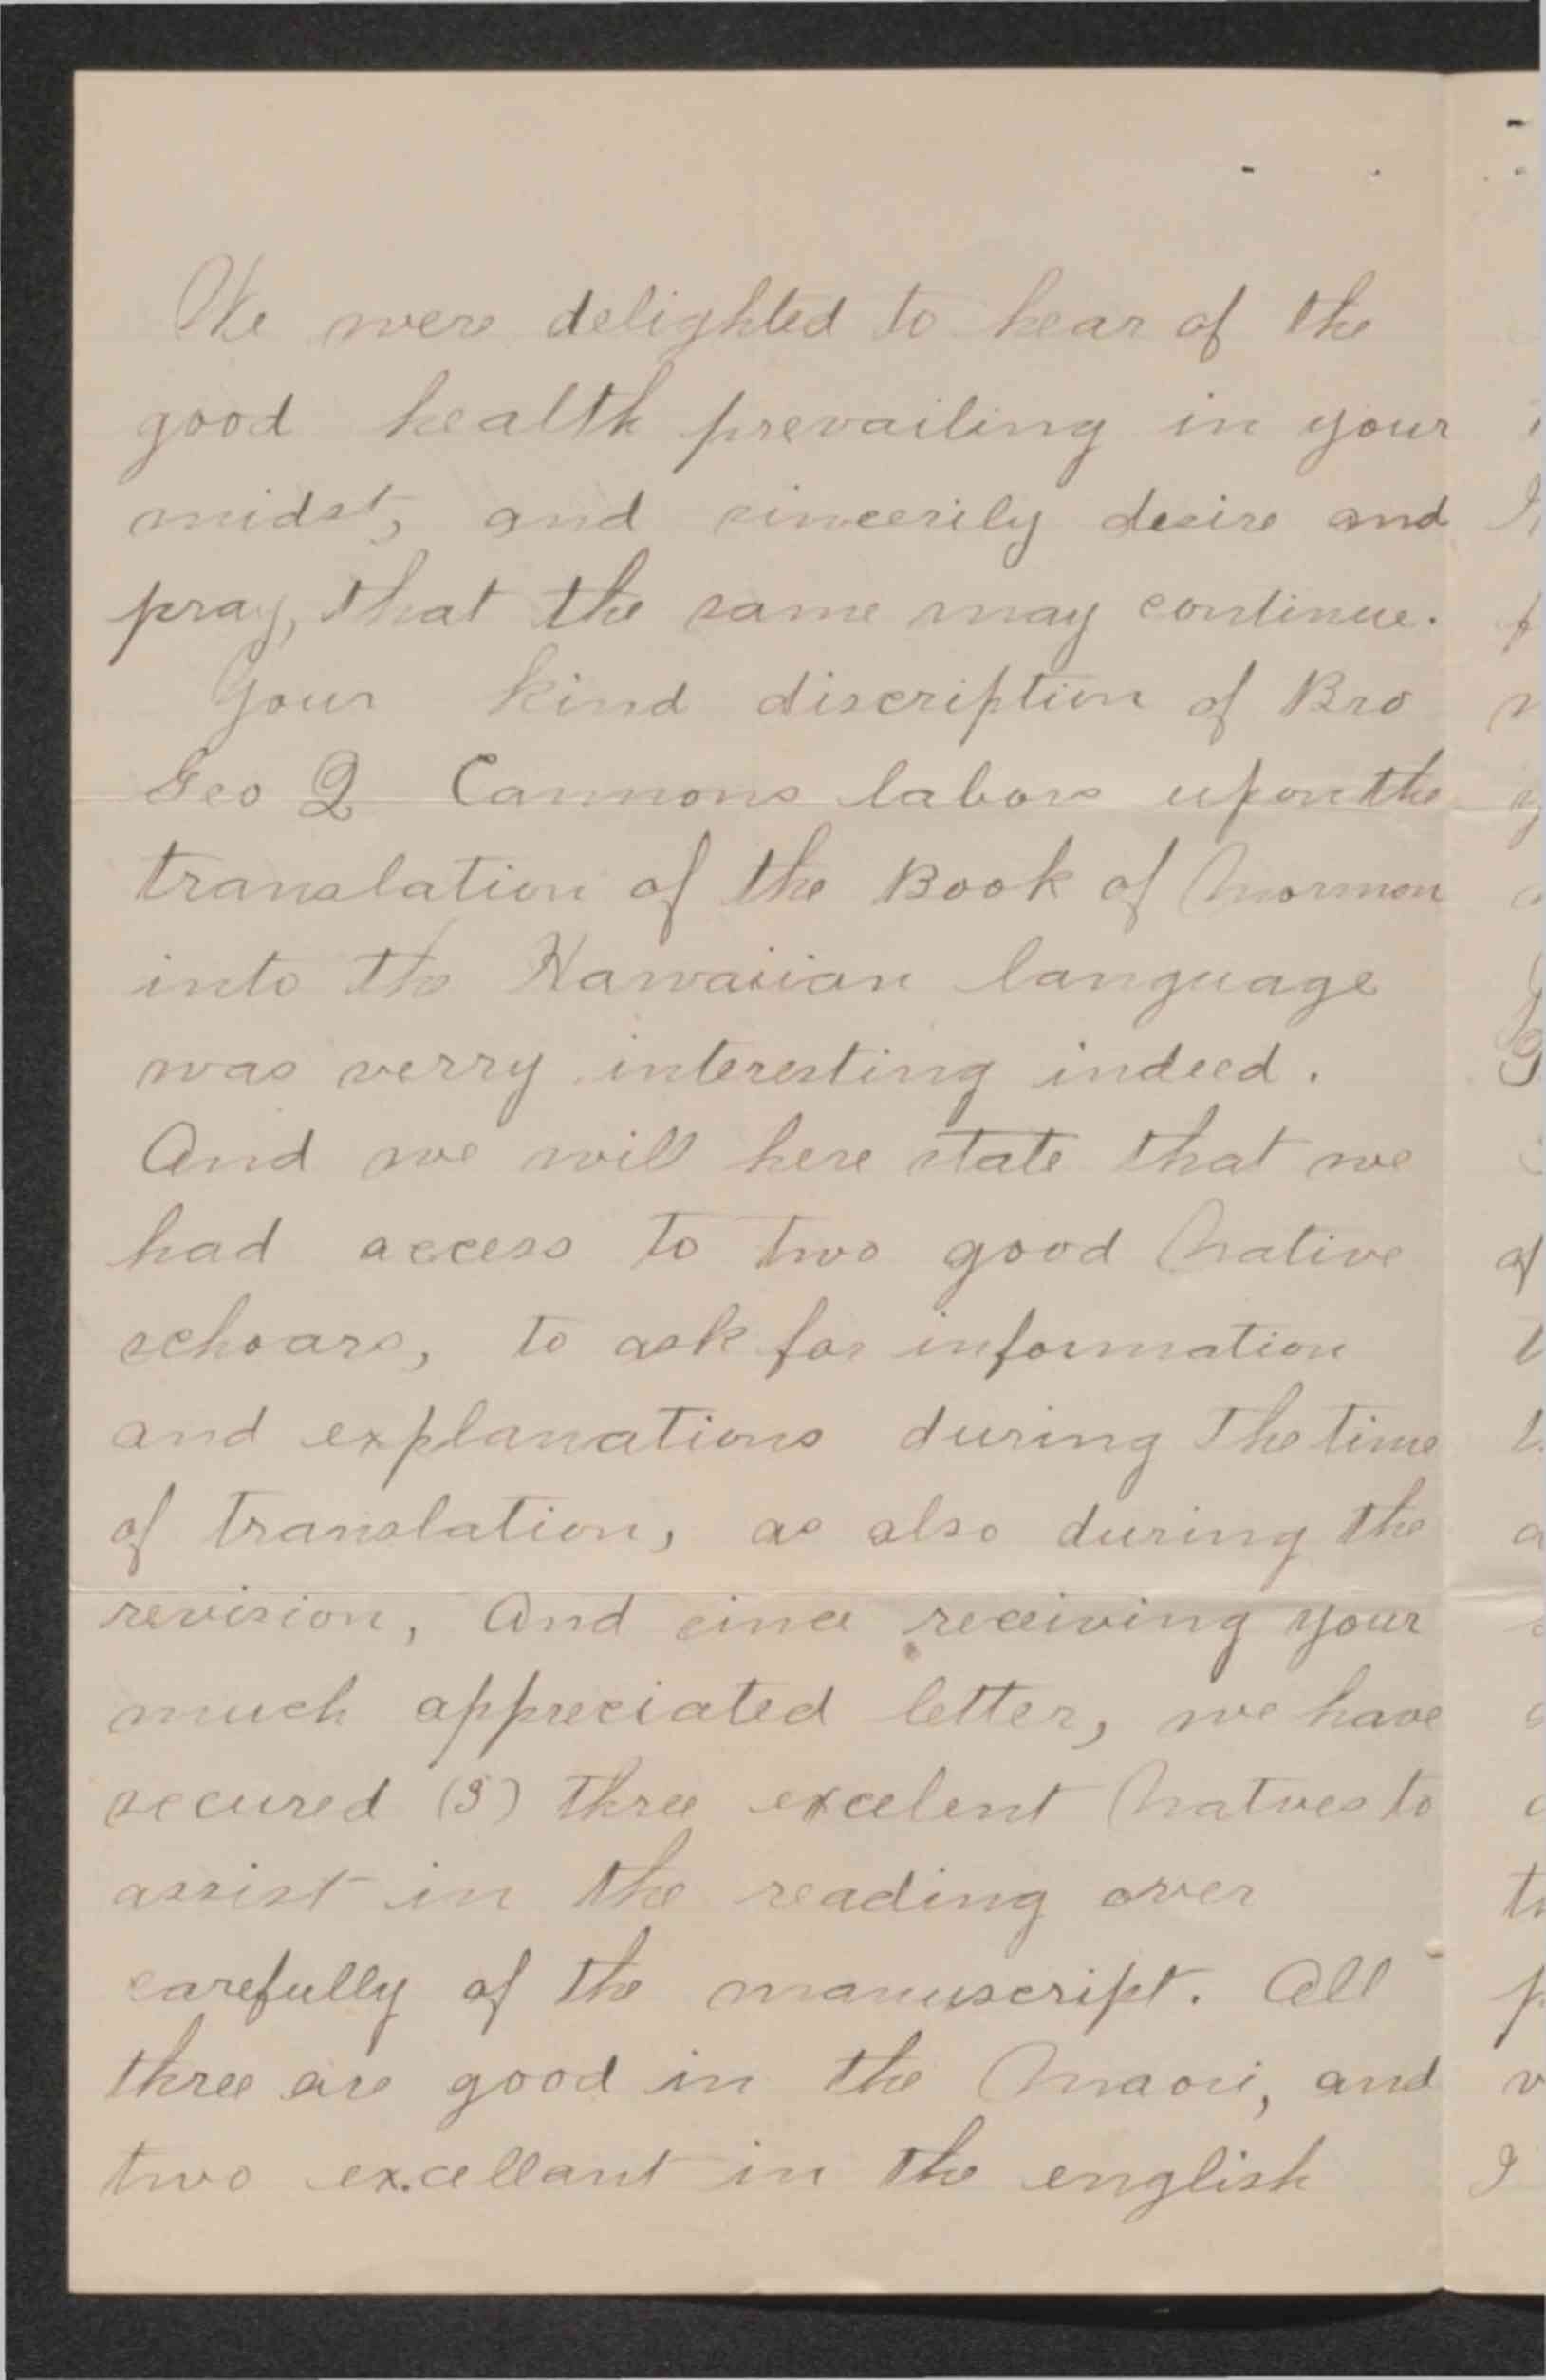 We were delighted to hear of the
good health prevailing in your
midst, and sincerily desire and
pray, that the same may continue.
Your kind discription of Bro
Geo Q Cannons labors upon the
translation of the Book of Mormon
into the Hawaiian language
was verry interesting indeed.
And we will here state that we
had access to two good Native
schoars, to ask for information
and explanations during the time
of translation, as also during the
revision, And since receiving your
much appreciated letter, we have
secured (3) three excelent Natves to
assist in the reading over
carefully of the manuscript. All
three are good in the Maori, and
two excellant in the english